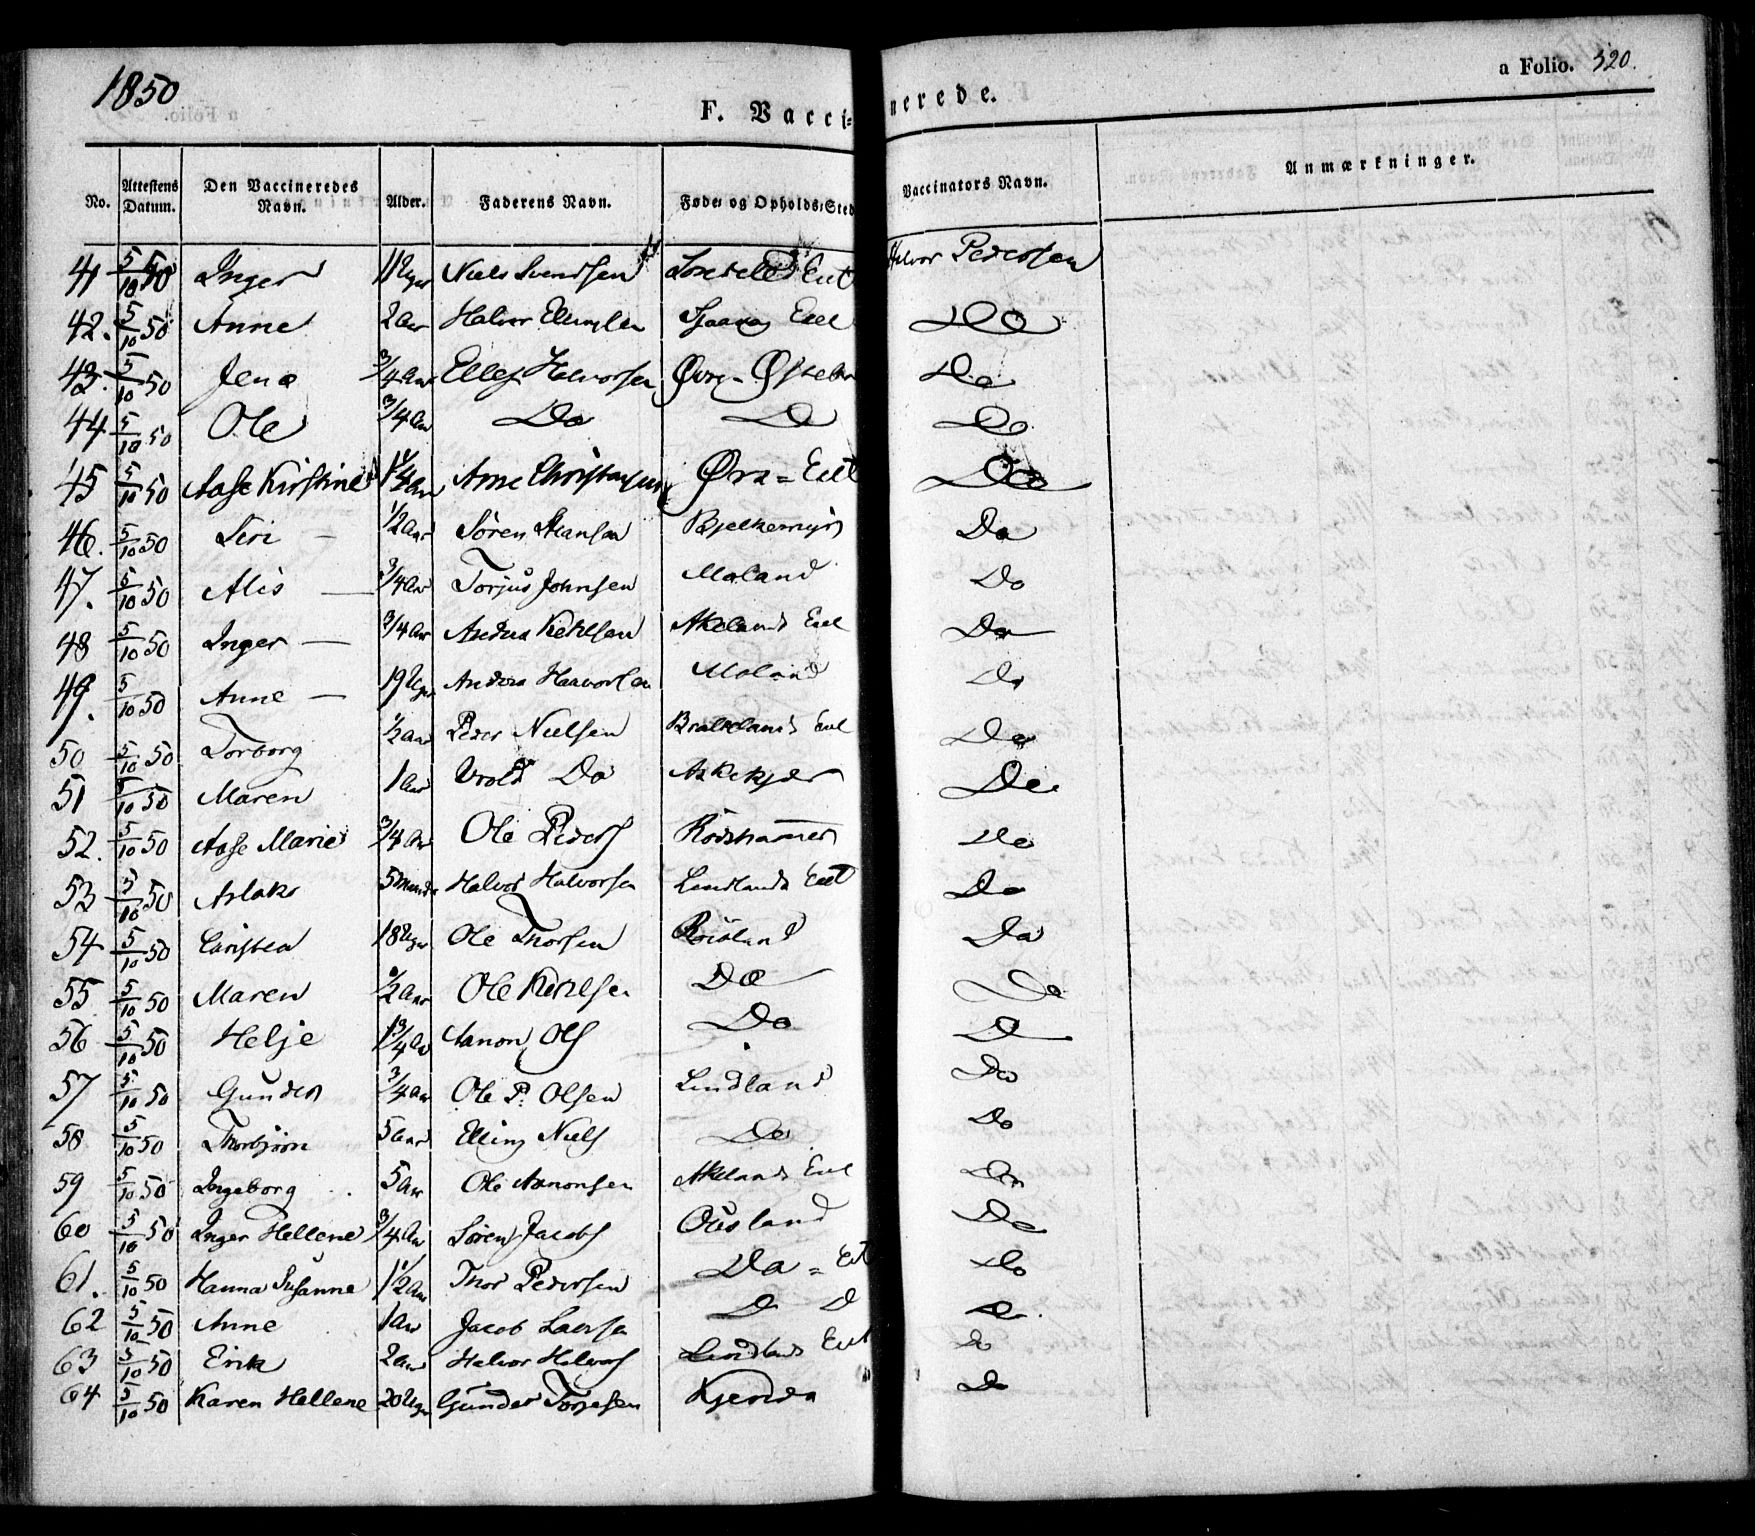 1850
a Folio. 320.
F. Vaccinerede.
No. Attestens Datum. Den Vaccineredes Navn. Alder. Faderens Navn. Føde- og Opholds-Sted Vaccinators Navn. Anmærkninger.
41 5/10 50 Inger 11 Uger Niels Svendsen Eiet Halvor Pedersen
42. 5/10 50 Anne 2 Aar Halvor Ellingsen Eiet Do
43. 5/10 50 Jens 3/4 Aar Ellef Halvorsen Do
44 5/10 50 Ole 3/4 Aar Do Do Do
45 5/10 50 Aase Kirstine 1 1/2 Aar Arne Christensen Øvre Eiet Do
46. 5/10 50 Siri 1/2 Aar Søren Hansen Bjelkemyr Do
47. 5/10 50 Alis 3/4 Aar Torjus Johnsen Moland Do
48 5/10 50 Inger 3/4 Aar Anders Ketelsen Akelands Eiet Do
49. 5/10 50 Anne 19 Uger Anders Haavorsen Moland Do
50 5/10 50 Torborg 1/2 Aar Peder Nielsen Eiet Do
51 5/10 50 Maren 1 Aar Wrold Do Askekjær Do
52. 5/10 50 Aase Marie 3/4 Aar Ole Peders Rødshammer Do
53 5/10 50 Aslak 5 Maaneder Halvor Halvorsen Lindlands Eiet Do
54 5/10 50 Christen 18 Uger Ole Thorsen Røisland Do
55 5/10 50 Maren 1/2 Aar Ole Ketelsen Do Do
56 5/10 50 Helje 1 3/4 Aar Aanon Ols Do Do
57 5/10 50 Gunder 3/4 Aar Ole P. Olsen Lindland Do
58 5/10 50 Thorbjørn 5 Aar Elling Niels Do Do
59 5/10 50 Ingeborg 5 Aar Ole Aanonsen Akelands Eiet Do
60 5/10 50 Inger Hellene 3/4 Aar Søren Jacobs Ousland Do
61. 5/10 50 Hanna Susanne 1 1/2 Aar Thor Pedersen Do Eiet Do
62 5/10 50 Anne 1 Aar Jacob Larsen Do Do Do
63 5/10 50 Erik 2 Aar Halvor Halvors Lindlands Eiet Do
64 5/10 50 Karen Hellene 20 Uger Gunder Torjesen Do